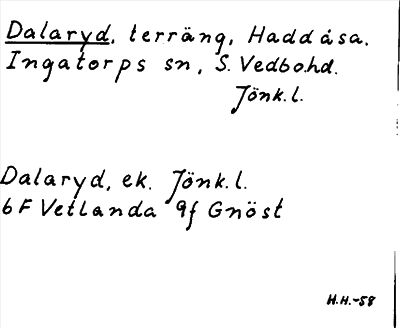 Dalaryd, terräng, Haddåsa.
Ingatorps sn, S. Vedbo hd.
Jönk. l.
Dalaryd, ek. Jönk. l.
6 F Vetlanda 9f Gnöst
H.H.-58